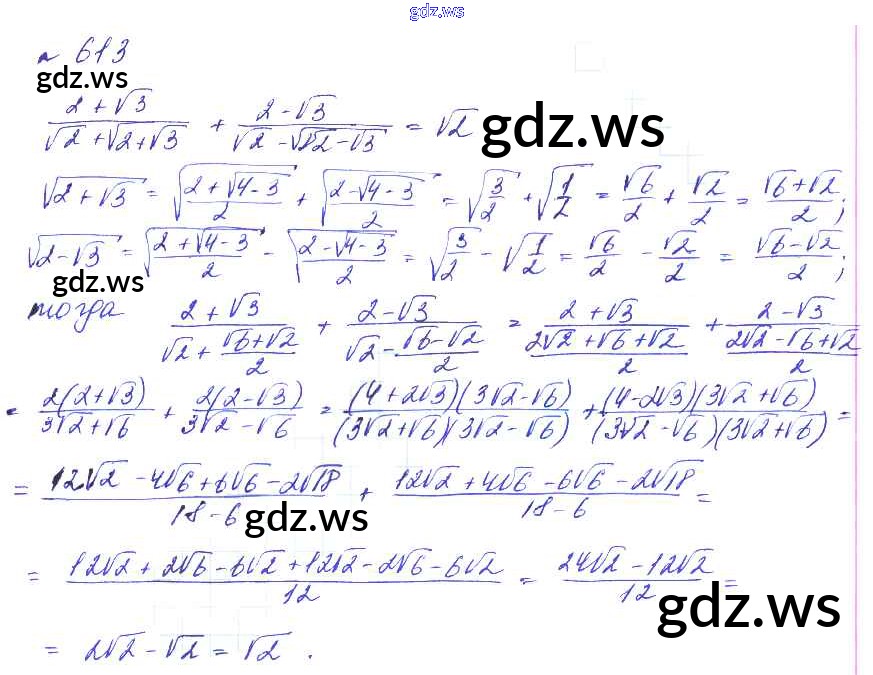 gdz.ws
№ 613
gdz.ws
(2+√3)/(√2+√(2+√3)) + (2-√3)/(√2-√(2-√3)) = √2
gdz.ws
√(2+√3) = √((2+√(4-3))/2) + √((2-√(4-3))/2) = √(3/2) + √(1/2) = √6/2 + √2/2 = (√6+√2)/2;
√(2-√3) = √((2+√(4-3))/2) - √((2-√(4-3))/2) = √(3/2) - √(1/2) = √6/2 - √2/2 = (√6-√2)/2;
gdz.ws
тогда (2+√3)/(√2+(√6+√2)/2) + (2-√3)/(√2-(√6-√2)/2) = (2+√3)/((2√2+√6+√2)/2) + (2-√3)/((2√2-√6+√2)/2)
= 2(2+√3)/(3√2+√6) + 2(2-√3)/(3√2-√6) = (4+2√3)(3√2-√6)/((3√2+√6)(3√2-√6)) + (4-2√3)(3√2+√6)/((3√2-√6)(3√2+√6)) =
= (12√2-4√6+6√6-2√18)/(18-6) + (12√2+4√6-6√6-2√18)/(18-6) =
gdz.ws
= (12√2+2√6-6√2+12√2-2√6-6√2)/12 = (24√2-12√2)/12 =
gdz.ws
= 2√2-√2=√2.